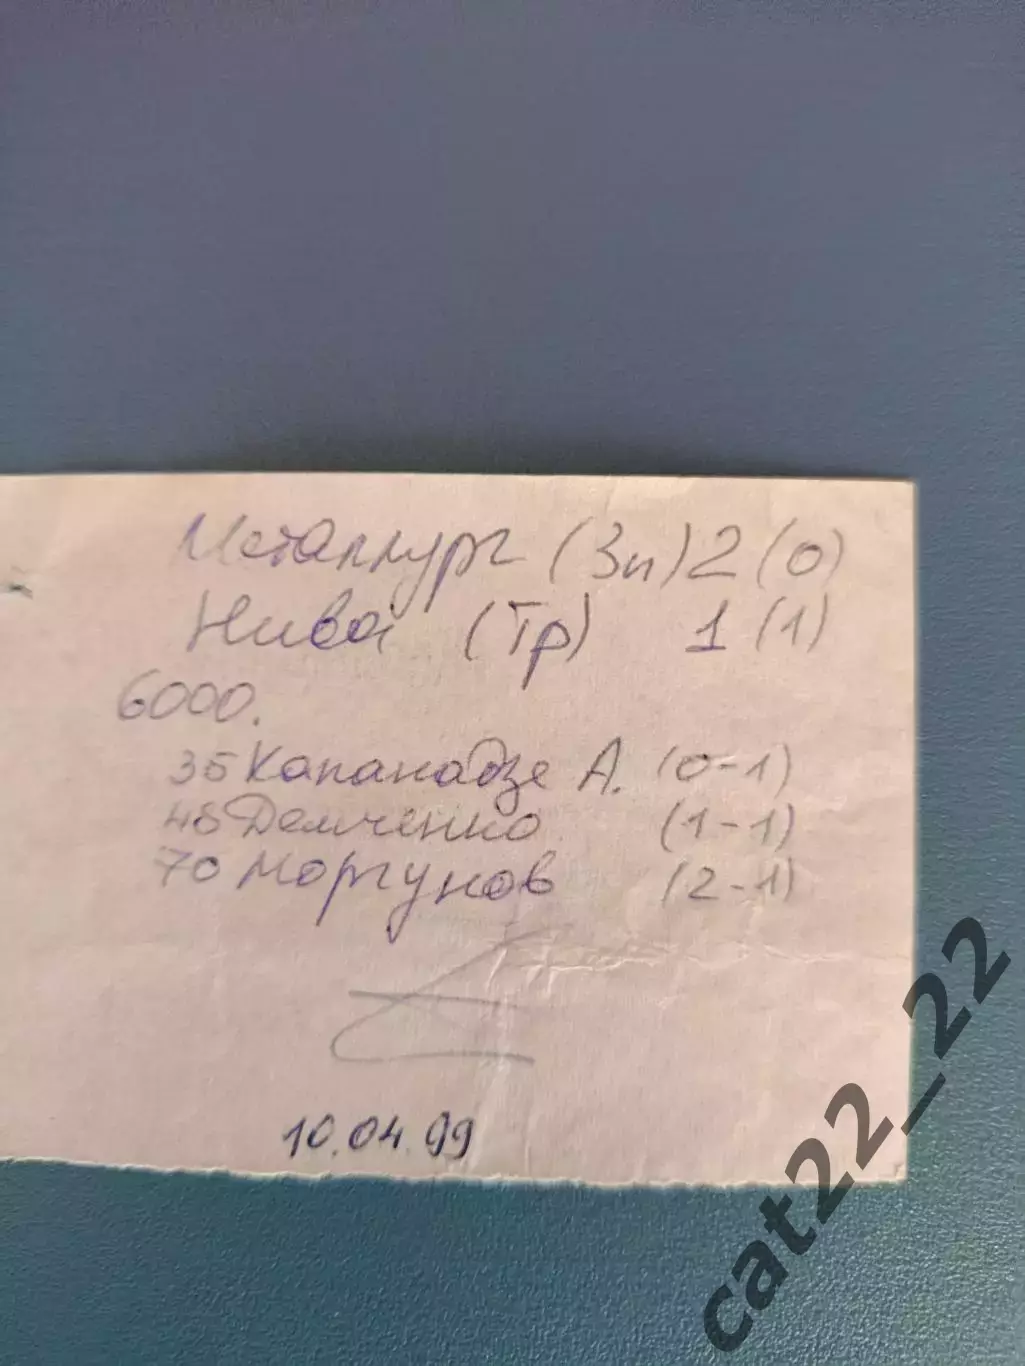 Металлург (Зп) 2 (0)
Нива (Тр) 1 (1)
6000.
35 Капанадзе А. (0-1)
48 Демченко (1-1)
70 Моргунов (2-1)
10.04.99
cat22_22